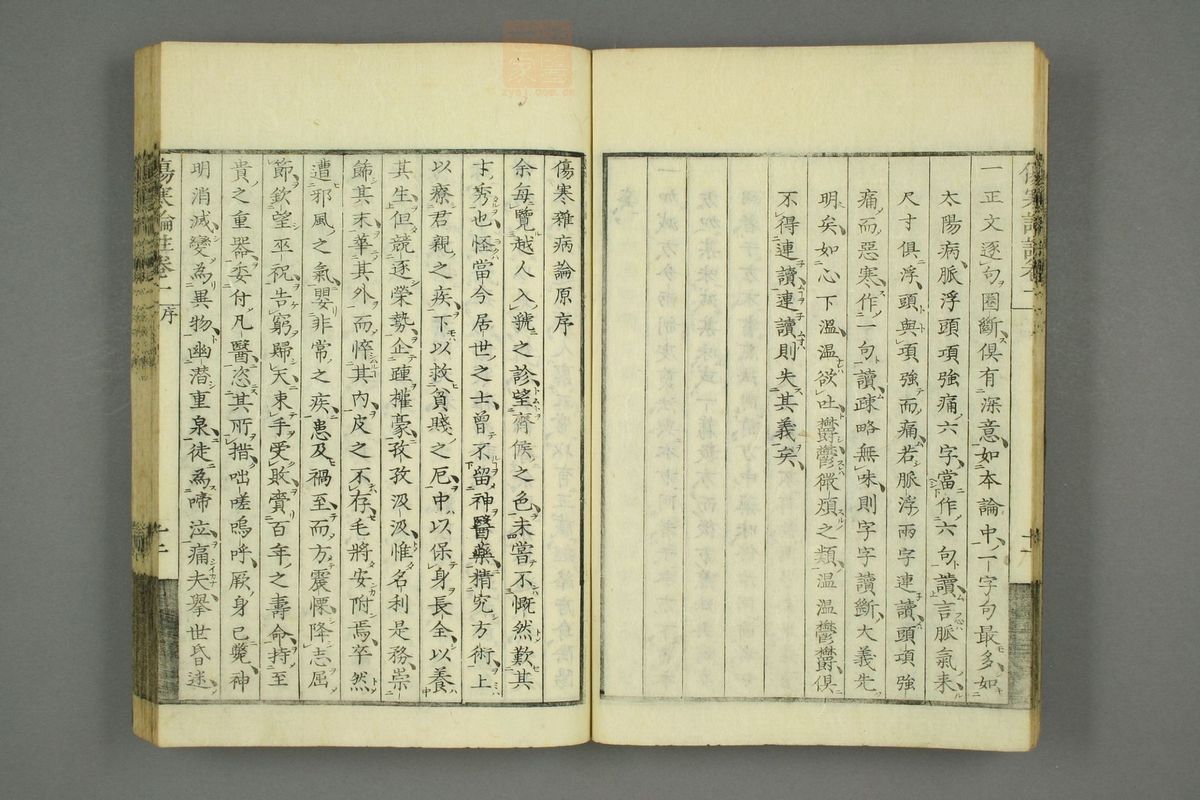 一正文逐句圈斷俱有深意如本論中一字句最多如
太陽病脈浮頭項強痛六字當作六句讀言脈氣来
尺寸俱浮頭與項強而痛若脈浮兩字連讀頭項強
痛而惡寒作一句讀疎略無味則字字讀斷大義先
明矣如心下溫溫欲吐鬱鬱微煩之類溫溫鬱鬱俱
不得連讀連讀則失其義矣
傷寒雜病論原序
余每覽越人入虢之診望齊候之色未嘗不慨然歎其
才秀也怪當今居世之士曾不留神醫藥精究方術上
以療君親之疾下以救貧賤之厄中以保身長全以養
其生但競逐榮勢企踵權豪孜孜汲汲惟名利是務崇
飾其末華其外而悴其內皮之不存毛將安附焉卒然
遭邪風之氣嬰非常之疾患及禍至而方震慄降志屈
節欽望巫祝告窮歸天束手受敗賷百年之壽命持至
貴之重器委付凡醫恣其所措咄嗟嗚呼厥身已斃神
明消滅變為異物幽潜重泉徒為啼泣痛夫舉世昏迷
傷寒論註卷一 序
十二